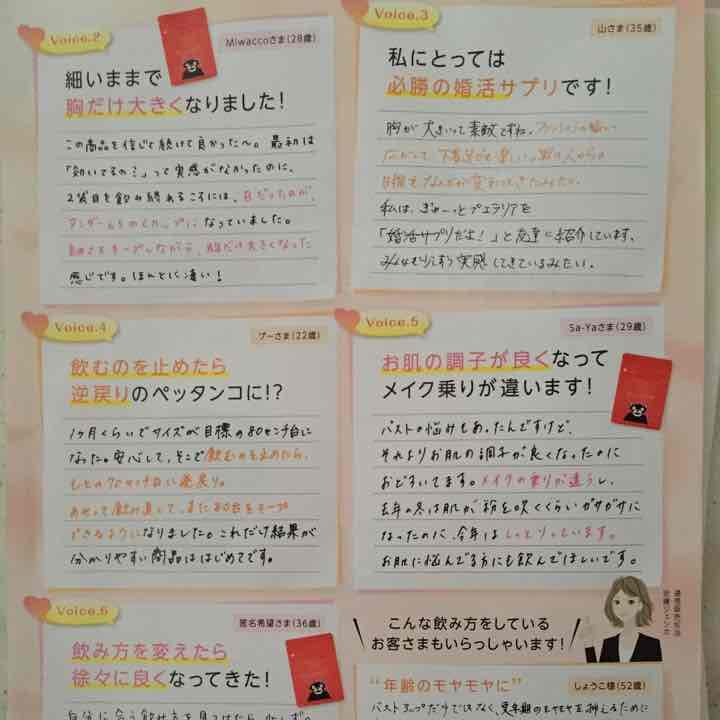 Voice.2
Miwaccoさま(28歳)
細いままで
胸だけ大きくなりました!
この商品を信じて続けて良かった〜。最初は
「効いてるの?」って実感がなかったのに、
2袋目を飲み終えるころには、
になっていました。
胸だけ大きくなった
感じです。ほんとに凄い!
Voice.3
山さま(35歳)
私にとっては
必勝の婚活サプリです!
胸が大きいって素敵ですね。
私は、ぎゅーっとプエラリアを
「婚活サプリだよ!」と友達に紹介しています。
みんなむりっすう実感してきているみたい。
Voice.4
プーさま(22歳)
飲むのを止めたら
逆戻りのペッタンコに!?
1ヶ月くらいでサイズが目標の80センチ台に
なった。安心して、そこで飲むのを止めたら、
もとの70センチ台に逆戻り。
あせって飲み直して、また80台をキープ
できるようになりました。これだけ結果が
分かりやすい商品ははじめてです。
Voice.5
Sa-Yaさま(29歳)
お肌の調子が良くなって
メイク乗りが違います!
バストの悩みもあったんですけど、
それよりお肌の調子が良くなったのに
おどろいてます。メイクの乗りが違うし、
去年の冬は肌が粉を吹くくらいガサガサに
なったのに、今年はしっとりっています。
お肌に悩んでる方にも飲んでほしいです。
Voice.6
匿名希望さま(36歳)
飲み方を変えたら
徐々に良くなってきた!
こんな飲み方をしている
お客さまもいらっしゃいます!
"年齢のモヤモヤに"
しょうこ様(52歳)
バストアップだけではなく、更年期のモヤモヤを抑えるために